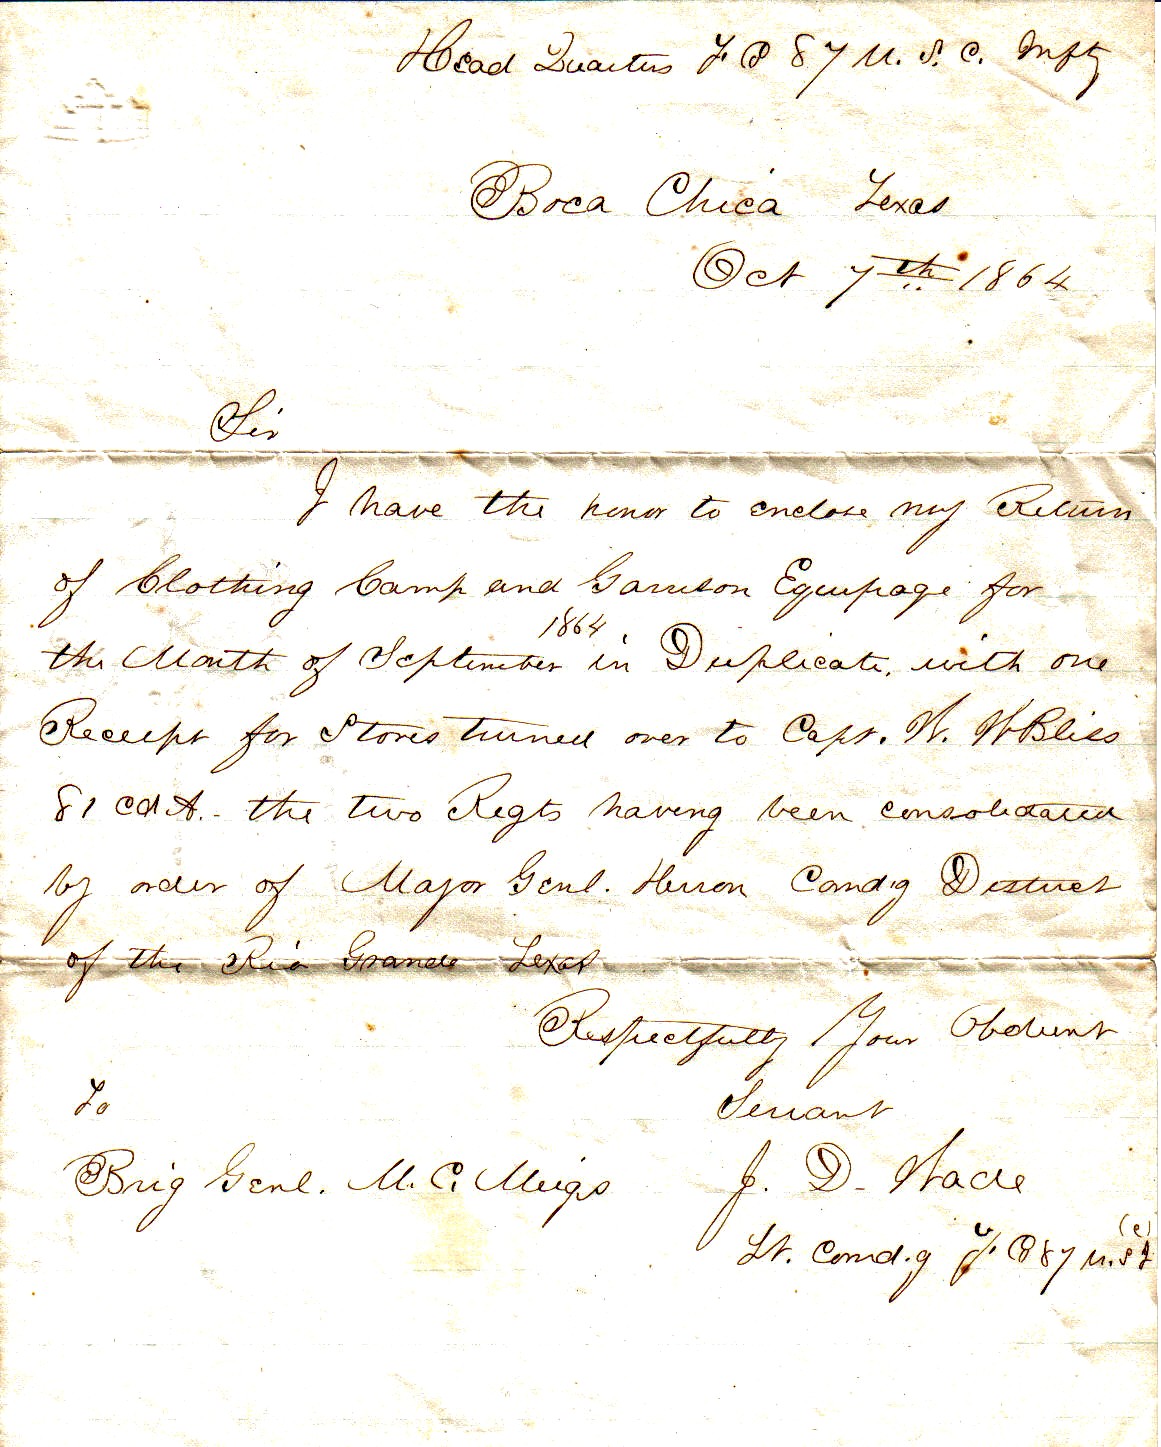 Head Quarters F Co 87 U. S. C. Infty
Boca Chica Texas
Oct 7th 1864
Sir
I have the honor to enclose my Return
of Clothing Camp and Garrison Equipage for
1864
the Month of September in Duplicate, with one
Receipt for Stores turned over to Capt. W. W Bliss
81 Cd A.- the two Regts having been consolidated
by order of Major Genl. Herron Comd'g District
of the Rio Grande Texas
Respectfully Your Obedient
To
Servant
Brig Genl. M. C. Meigs
J. D. Wade
(c)
Lt. Comd.g F. Co 87 U.S I